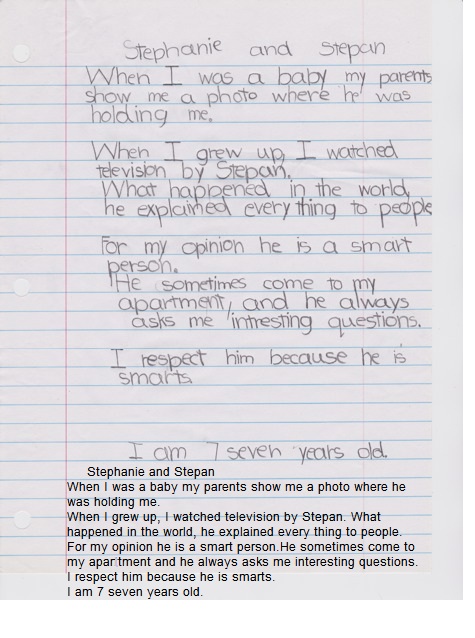 Stephanie and Stepan
When I was a baby my parents
show me a photo where he was
holding me.
When I grew up, I watched
television by Stepan.
What happened in the world,
he explained every thing to people
For my opinion he is a smart
person.
He sometimes come to my
apartment, and he always
asks me intresting questions.
I respect him because he is
smarts.
I am 7 seven years old.
Stephanie and Stepan
When I was a baby my parents show me a photo where he
was holding me.
When I grew up, I watched television by Stepan. What
happened in the world, he explained every thing to people.
For my opinion he is a smart person.He sometimes come to
my apartment and he always asks me interesting questions.
I respect him because he is smarts.
I am 7 seven years old.